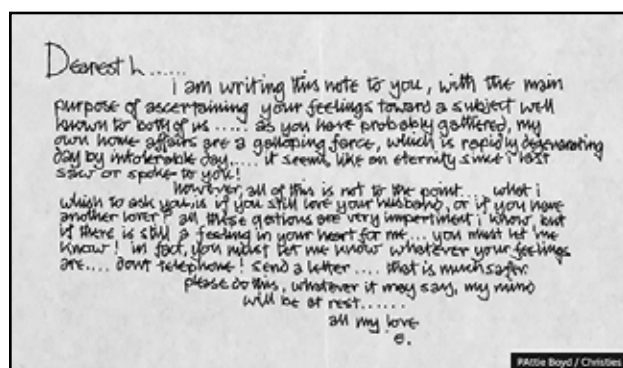 Dearest L......
i am writing this note to you, with the main
purpose of ascertaining your feelings toward a subject well
known to both of us ..... as you have probably gathered, my
own home affairs are a galloping farce, which is rapidly degenerating
day by intolerable day.... it seems like an eternity since i last
saw or spoke to you!
however, all of this is not to the point... what i
whish to ask you, is if you still love your husband, or if you have
another lover? all these qestions are very impertinent i know, but
if there is still a feeling in your heart for me... you must let me
know! in fact, you must let me know whatever your feelings
are.... dont telephone! send a letter .... that is much safer.
please do this, whatever it may say, my mind
will be at rest......
all my love
e.
PAttie Boyd / Christies